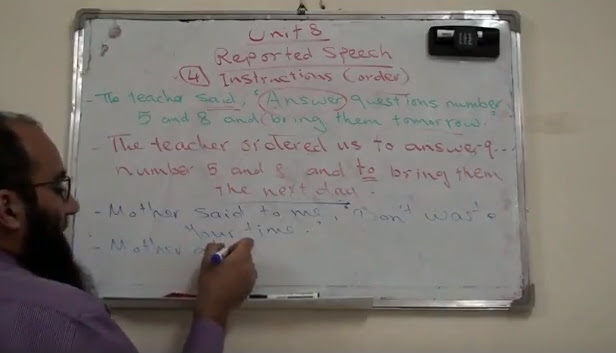 Unit 8
Reported Speech
4 Instructions (order)
- The teacher said, "Answer questions number
5 and 8 and bring them tomorrow."
- The teacher ordered us to answer q...
number 5 and 8 and to bring them
the next day.
- Mother said to me, "Don't waste
your time."
- Mother